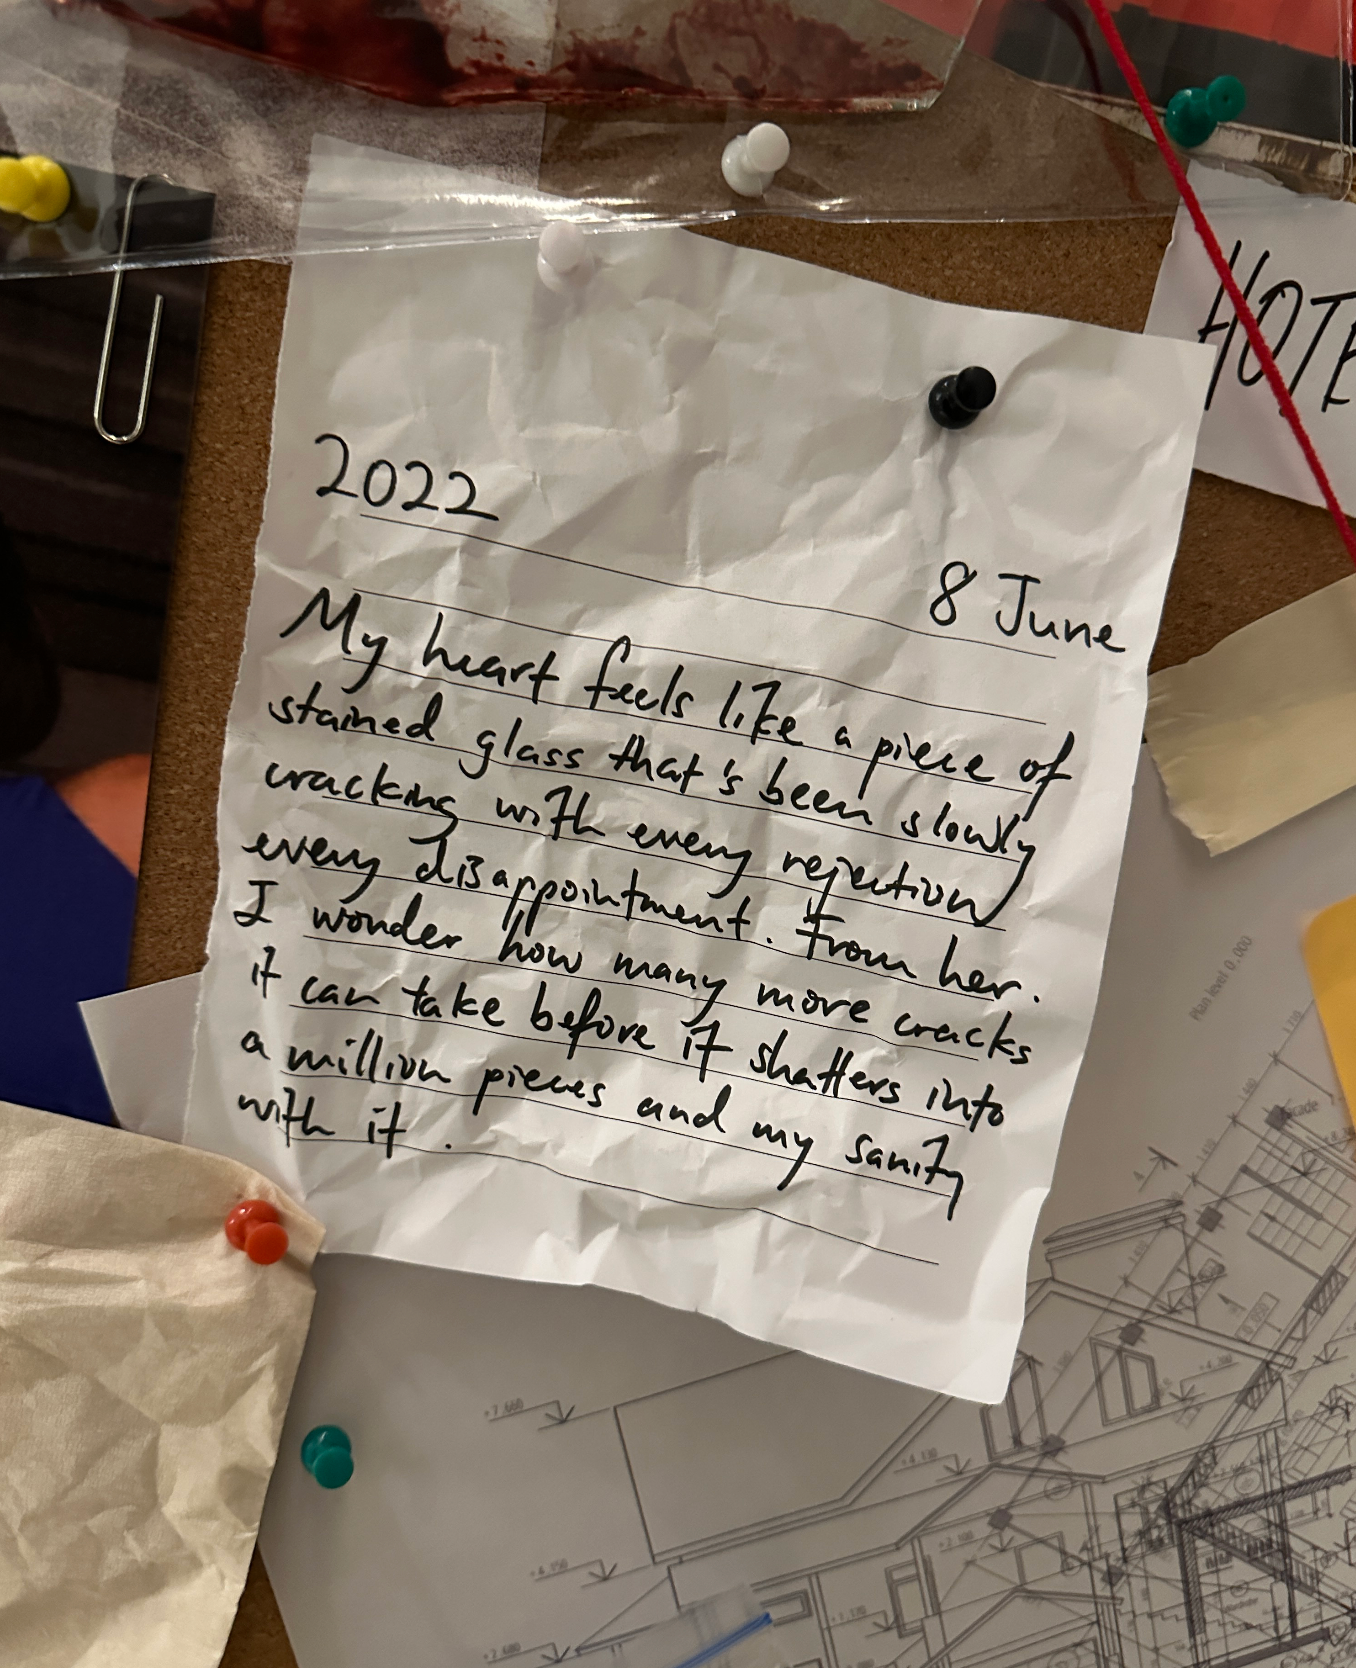 HOTE
2022
8 June
My heart feels like a piece of
stained glass that's been slowly
cracking with every rejection
every disappointment. From her.
I wonder how many more cracks
it can take before it shatters into
a million pieces and my sanity
with it.
Plan level 0.000
+7.660
+4.130
+4.200
+2.500
+2.680